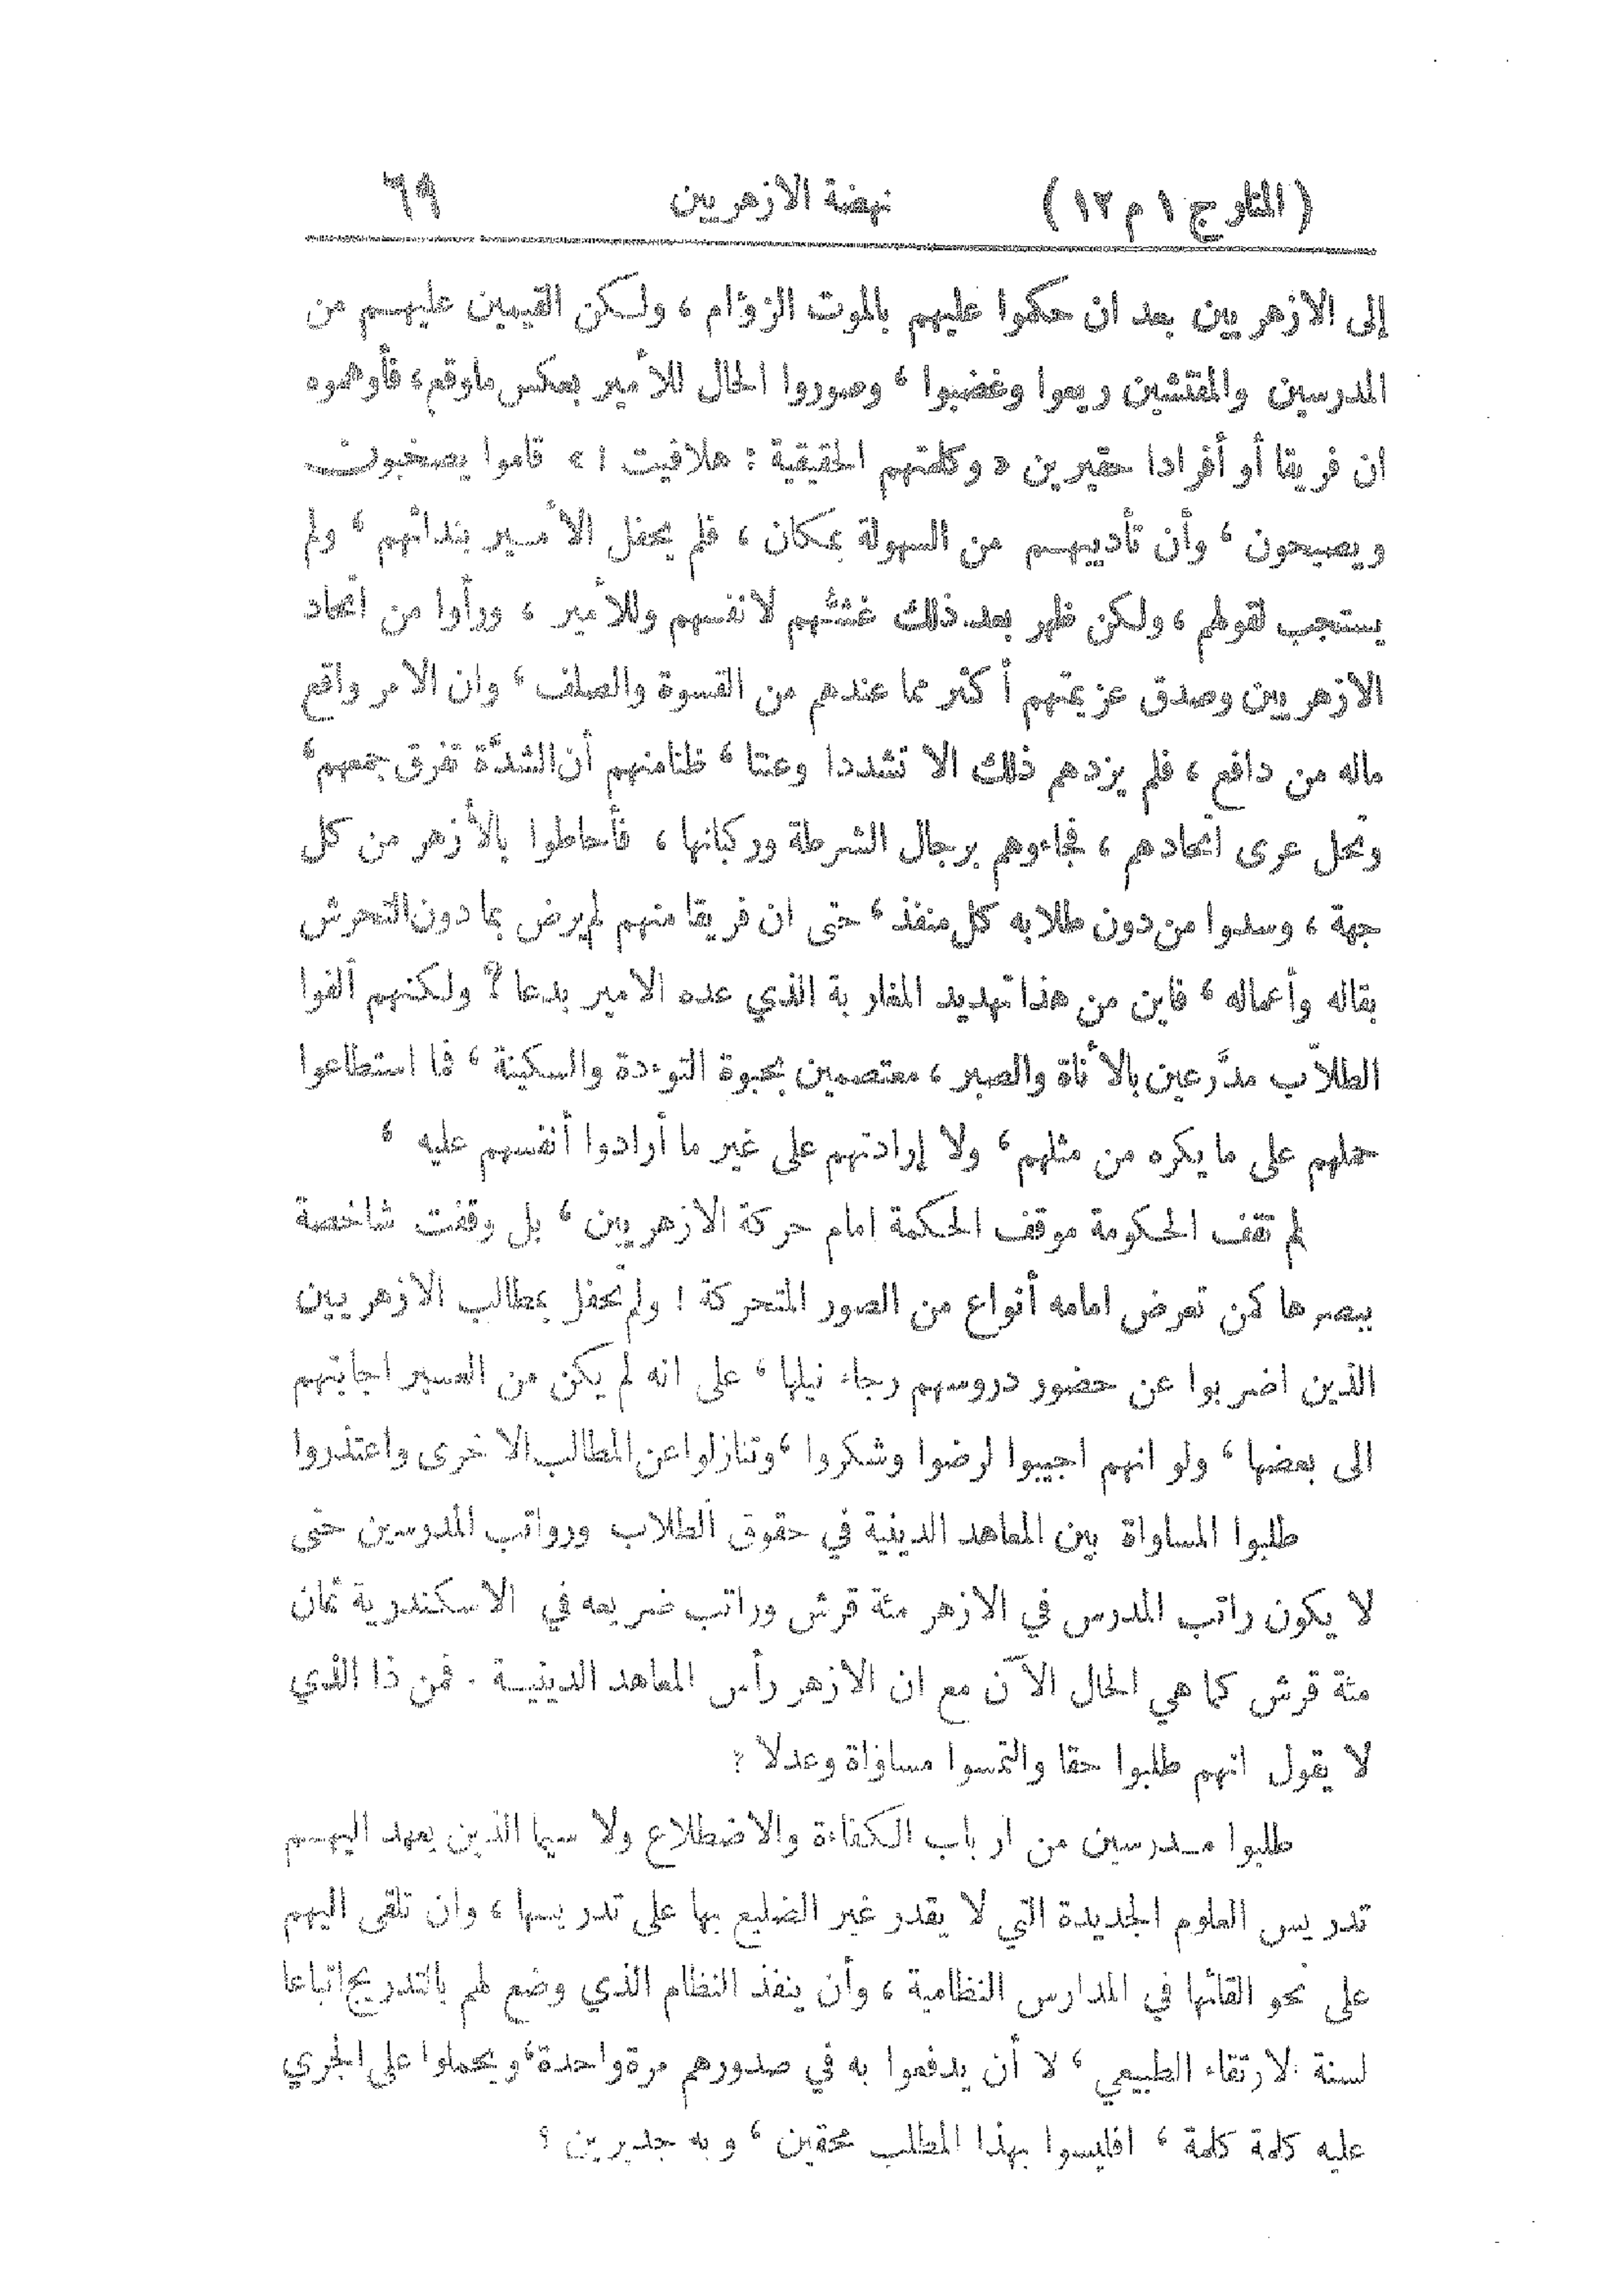 (المنار ج ١ م ١٢) نهضة الازهريين ٦٩
إلى الازهريين بعد ان حكموا عليهم بالموت الزؤام ، ولكن القيمين عليهم من
المدرسين والمفتشين ريعوا وغضبوا ، وصوروا الحال للأمير بعكس ماوقع ، فأوهموه
ان فريقا أو أفرادا حقيرين « وكلمتهم الحقيقية : هلافيت ! » قاموا يصخبون
ويصيحون ، وأن تأديبهم من السهولة بمكان ، فلم يحفل الأمير بندائهم ، ولم
يستجب لقولهم ، ولكن ظهر بعد ذلك غشهم لانفسهم وللأمير ، ورأوا من اتحاد
الازهريين وصدق عزيمتهم أكثر مما عندهم من القسوة والصلف ، وان الامر واقع
ماله من دافع ، فلم يزدهم ذلك الا تشددا وعتا ، ظنا منهم أن الشدَّة تفرق جمعهم ،
وتحل عرى اتحادهم ، فجاءوهم برجال الشرطة وركبانها ، فأحاطوا بالأزهر من كل
جهة ، وسدوا من دون طلابه كل منفذ ، حتى ان فريقا منهم لم يرض بما دون التحرش
بقاله وأعماله ، فاين من هذا تهديد المغاربة الذي عده الامير بدعا ؟ ولكنهم ألفوا
الطلاّب مدَّرعين بالأناة والصبر ، معتصمين بحبوة التوءدة والسكينة ، فما استطاعوا
حملهم على ما يكره من مثلهم ، ولا إرادتهم على غير ما أرادوا أنفسهم عليه ،
لم تقف الحكومة موقف الحكمة امام حركة الازهريين ، بل وقفت شاخصة
ببصرها كمن تعرض امامه أنواع من الصور المتحركة ! ولم تحفل بمطالب الازهريين
الذين اضربوا عن حضور دروسهم رجاء نيلها ، على انه لم يكن من العسير اجابتهم
الى بعضها ، ولو انهم اجيبوا لرضوا وشكروا ، وتنازلوا عن المطالب الاخرى واعتذروا
طلبوا المساواة بين المعاهد الدينية في حقوق الطلاب ورواتب المدرسين حتى
لا يكون راتب المدرس في الازهر مئة قرش وراتب ضريعه في الاسكندرية ثمان
مئة قرش كما هي الحال الآن مع ان الازهر رأس المعاهد الدينية . فمن ذا الذي
لا يقول انهم طلبوا حقا والتمسوا مساواة وعدلا ؟
طلبوا مدرسين من ارباب الكفاءة والاضطلاع ولا سيما الذين يعهد اليهم
تدريس العلوم الجديدة التي لا يقدر غير الضليع بها على تدريسها ، وان تلقى اليهم
على نحو القائها في المدارس النظامية ، وأن ينفذ النظام الذي وضع لهم بالتدريج اتباعا
لسنة الارتقاء الطبيعي ، لا أن يدفعوا به في صدورهم مرة واحدة ، ويحملوا على الجري
عليه كلمة كلمة ، افليسوا بهذا المطلب محقين ، وبه جديرين ؟